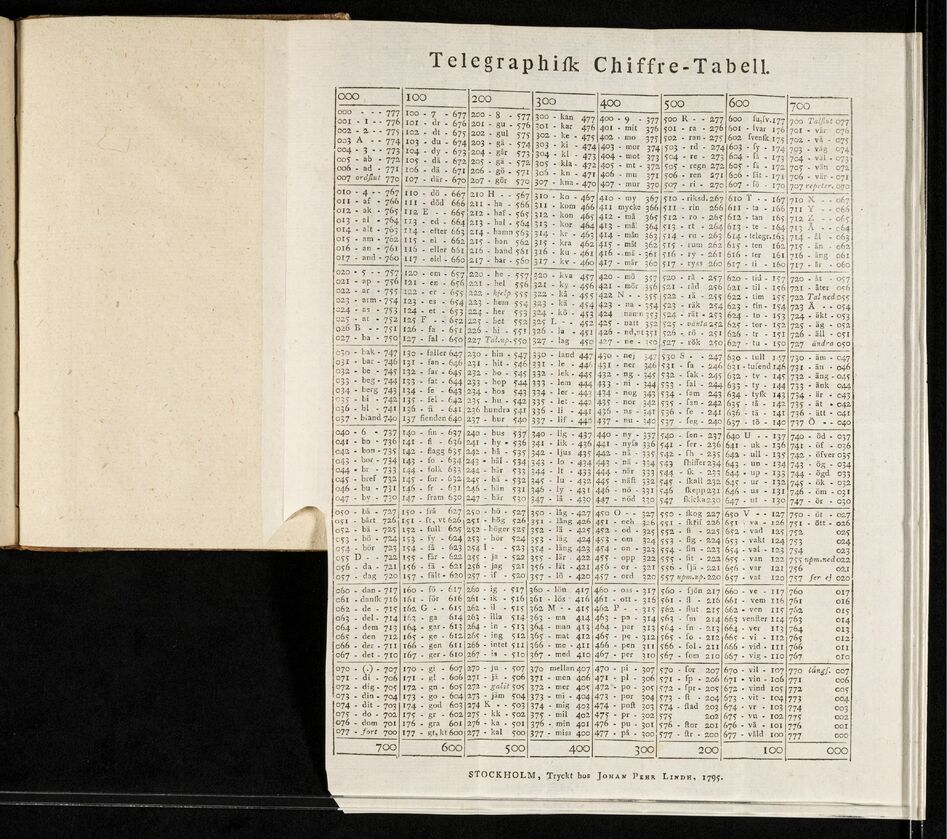 Telegraphiſk Chiffre-Tabell.
000 100 200 300 400 500 600 700
000 - - - 777 100 - 7 - 677 200 - 8 - 577 300 - kan 477 400 - 9 - 377 500 R - - 277 600 - ſu,ſv.177 700 Talſlut 077
001 - 1 - - 776 101 - dr - 676 201 - gu - 576 301 - kar 476 401 - mit 376 501 - ra - 276 601 - ſvar 176 701 - vår 076
002 - 2 - - 775 102 - dt - 675 202 - gul 575 302 - ke - 475 402 - mo 375 502 - ran - 275 602 ſvenſk 175 702 - vä - 075
003 A - - 774 103 - du - 674 203 - gå - 574 303 - ki - 474 403 - mor 374 503 - rd - 274 603 - ſy - 174 703 - väg 074
004 - 3 - - 773 104 - dy - 673 204 - går 573 304 - kl - 473 404 - mot 373 504 - re - 273 604 - ſå - 173 704 - väl - 073
005 - ab - 772 105 - då - 672 205 - gä - 572 305 - kla - 472 405 - mt - 372 505 - regn 272 605 - ſä - 172 705 - vän 072
006 - ad - 771 106 - dä - 671 206 - gö - 571 306 - kn - 471 406 - mu 371 506 - ren 271 606 - ſät - 171 706 - vär - 071
007 ordſlut 770 107 - där - 670 207 - gör 570 307 - kna - 470 407 - mur 370 507 - ri - 270 607 - ſö - 170 707 repeter. 070
010 - 4 - - 767 110 - dö - 667 210 H - - 567 310 - ko - 467 410 - my 367 510 - riksd. 267 610 T - - 167 710 X - - 067
011 - af - 766 111 - död 666 211 - ha - 566 311 - kom 466 411 mycke 366 511 - rin 266 611 - ta - 166 711 Y - - 066
012 - ak - 765 112 E - - 665 212 - haf - 565 312 - kon 465 412 - må 365 512 - ro - 265 612 - tan 165 712 Z - - 065
013 - al - 764 113 - ed - 664 213 - hal - 564 313 - kor 464 413 - mål 364 513 - rt - 264 613 - te - 164 713 Å - - 064
014 - alt - 763 114 - efter 663 214 - hamn 563 314 - kr - 463 414 - mån 363 514 - ru - 263 614 - telegr. 163 714 - ål - 063
015 - am - 762 115 - el - 662 215 - han 562 315 - kra 462 415 - måt 362 515 - rum 262 615 - ten 162 715 - än - 062
016 - an - 761 116 - eller 661 216 - hand 561 316 - ku - 461 416 - mä - 361 516 - ry - 261 616 - ter 161 716 - äng 061
017 - and - 760 117 - eld - 660 217 - har - 560 317 - kv - 460 417 - mär 360 517 - ryss 260 617 - ti - 160 717 - år - 060
020 - 5 - - 757 120 - em - 657 220 - he - 557 320 - kva 457 420 - mö 357 520 - rå - 257 620 - tid - 157 720 - åt - 057
021 - ap - 756 121 - en - 656 221 - hel 556 321 - ky - 456 421 - mör 356 521 - råd 256 621 - til - 156 721 - åter 056
022 - ar - 755 122 - er - 655 222 - hjelp 555 322 - kå - 455 422 N - - 355 522 - rä - 255 622 - tim 155 722 Tal ned 055
023 - arm - 754 123 - es - 654 223 - hem 554 323 - kä - 454 423 - na - 354 523 - räk 254 623 - tin - 154 723 Ä - - 054
024 - as - 753 124 - et - 653 224 - her 553 324 - kö - 453 424 - namn 353 524 - rät - 253 624 - to - 153 724 - äkt - 053
025 - at - 752 125 F - - 652 225 - het 552 325 L - - 452 425 - natt 352 525 - vänta 252 625 - tor - 152 725 - äg - 052
026 B - - 751 126 - fa - 651 226 - hi - 551 326 - la - 451 426 - nd,nt 351 526 - rö - 251 626 - tr - 151 726 - äl - 051
027 - ba - 750 127 - fal - 650 227 Tal.up. 550 327 - lag 450 427 - ne - 350 527 - rök 250 627 - tu - 150 727 ändra 050
030 - bak - 747 130 - faller 647 230 - hin - 547 330 - land 447 430 - nej 347 530 S - - 247 630 - tull 147 730 - äm - 047
031 - bar - 746 131 - fan - 646 231 - hit - 546 331 - le - 446 431 - ner 346 531 - ſa - 246 631 - tuſend 146 731 - än - 046
032 - be - 745 132 - far - 645 232 - ho - 545 332 - lek - 445 432 - ng - 345 532 - ſak - 245 632 - tv - 145 732 - äng - 045
033 - beg - 744 133 - fat - 644 233 - hop 544 333 - lem 444 433 - ni - 344 533 - ſal - 244 633 - ty - 144 733 - änk 044
034 - berg 743 134 - fe - 643 234 - hos 543 334 - ler - 443 434 - nog 343 534 - ſam 243 634 - tyſk 143 734 - är - 043
035 - bi - 742 135 - fel - 642 235 - hu - 542 335 - let - 442 435 - nor 342 535 - ſan - 242 635 - tå - 142 735 - ät - 042
036 - bl - 741 136 - fi - 641 236 hundra 541 336 - li - 441 436 - ns - 341 536 - ſe - 241 636 - tä - 141 736 - ätt - 041
037 - bland 740 137 fienden 640 237 - hur 540 337 - lif - 440 437 - nu - 340 537 - ſeg - 240 637 - tö - 140 737 Ö - - 040
040 - 6 - 737 140 - fin - 637 240 - hus 537 340 - lig - 437 440 - ny - 337 540 - ſen - 237 640 U - - 137 740 - öd - 037
041 - bo - 736 141 - fl - 636 241 - hy - 536 341 - lik - 436 441 - nyſs 336 541 - ſer - 236 641 - uk - 136 741 - öf - 036
042 - bon - 735 142 - flagg 635 242 - hå - 535 342 - ljus 435 442 - nå - 335 542 - ſh - 235 642 - ull - 135 742 - öfver 035
043 - bor - 734 143 - fo - 634 243 - hål - 534 343 - lo - 434 443 - nä - 334 543 ſhiffer 234 643 - un - 134 743 - ög - 034
044 - br - 733 144 - folk 633 244 - här 533 344 - lt - 433 444 - när 333 544 - ſk - 233 644 - up - 133 744 - ögd 033
045 - bref 732 145 - for - 632 245 - hä - 532 345 - lu - 432 445 - näſt 332 545 - ſkall 232 645 - ur - 132 745 - ök - 032
046 - bu - 731 146 - fr - 631 246 - hän 531 346 - ly - 431 446 - nö - 331 546 ſkepp 231 646 - us - 131 746 - öm - 031
047 - by - 730 147 - fram 630 247 - här 530 347 - lå - 430 447 - nöd 330 547 ſkicka 230 647 - ut - 130 747 - ör - 030
050 - bå - 727 150 - frå 627 250 - hö - 527 350 - låg - 427 450 O - - 327 550 - ſkog 227 650 V - - 127 750 - öt - 027
051 - bårt 726 151 - ft, vt 626 251 - hög 526 351 - lång 426 451 - och 326 551 - ſkrif 226 651 - va - 126 751 - ött - 026
052 - bä - 725 152 - full 625 252 - höger 525 352 - lä - 425 452 - od - 325 552 - ſl - 225 652 - vad 125 752 025
053 - bö - 724 153 - fy - 624 253 - hör 524 353 - läg 424 453 - om 324 553 - ſlg - 224 653 - vakt 124 753 024
054 - bör 723 154 - få - 623 254 I - - 523 354 - läng 423 454 - on - 323 554 - ſin - 223 654 - val - 123 754 023
055 D - - 722 155 - får - 622 255 - ja - 522 355 - lär 422 455 - opp 322 555 - ſit - 222 655 - van 122 755 npm.ned 022
056 - da - 721 156 - fä - 621 256 - jag 521 356 - lät - 421 456 - or - 321 556 - ſjä - 221 656 - var 121 756 021
057 - dag 720 157 - fält - 620 257 - if - 520 357 - lö - 420 457 - ord 320 557 npm.up. 220 657 - vat 120 757 ſer ej 020
060 - dan - 717 160 - fö - 617 260 - ig - 517 360 - lön 417 460 - oss - 317 560 - ſjön 217 660 - ve - 117 760 017
061 - danſk 716 161 - för 616 261 - ik - 516 361 - lös - 416 461 - ott - 316 561 - ſl - 216 661 - vem 116 761 016
062 - de - 715 162 G - - 615 262 - il - 515 362 M - - 415 462 P - - 315 562 - ſlut 215 662 - ven 115 762 015
063 - del - 714 163 - ga - 614 263 - illa 514 363 - ma - 414 463 - pa - 314 563 - ſm 214 663 venſter 114 763 014
064 - dem 713 164 - gar - 613 264 - in - 513 364 - man 413 464 - par 313 564 - ſn - 213 664 - ver 113 764 013
065 - den 712 165 - ge - 612 265 - ing 512 365 - mat 412 465 - pe - 312 565 - ſo - 212 665 - vi - 112 765 012
066 - der - 711 166 - gen 611 266 - intet 511 366 - me - 411 466 - pen 311 566 - ſol - 211 666 - vid - 111 766 011
067 - det - 710 167 - ger - 610 267 - is - 510 367 - med 410 467 - per 310 567 - ſom 210 667 - vig - 110 767 010
070 - (.) - 707 170 - gi - 607 270 - ju - 507 370 mellan 407 470 - pi - 307 570 - ſor 207 670 - vil - 107 770 långſ. 007
071 - di - 706 171 - gl - 606 271 - jä - 506 371 - men 406 471 - pl - 306 571 - ſp - 206 671 - vin - 106 771 006
072 - dig - 705 172 - gn - 605 272 - galit 505 372 - mer 405 472 - po - 305 572 - ſpr - 205 672 - vind 105 772 005
073 - din - 704 173 - go - 604 273 - jäm 504 373 - mi - 404 473 - por 304 573 - ſt - 204 673 - vit - 104 773 004
074 - dit - 703 174 - god 603 274 K - - 503 374 - mig 403 474 - poſt 303 574 - ſtad 203 674 - vr - 103 774 003
075 - do - 702 175 - gr - 602 275 - kk - 502 375 - mil 402 475 - pr - 302 575 202 675 - vu - 102 775 002
076 - dom 701 176 - gra 601 276 - ka - 501 376 - min 401 476 - pu - 301 576 - ſtor 201 676 - vå - 101 776 001
077 - fort 700 177 - gt,kt 600 277 - kal 500 377 - miss 400 477 - på - 300 577 - ſtr - 200 677 - våld 100 777 000
700 600 500 400 300 200 100 000
STOCKHOLM, Tryckt hos JOHAN PEHR LINDH, 1795.